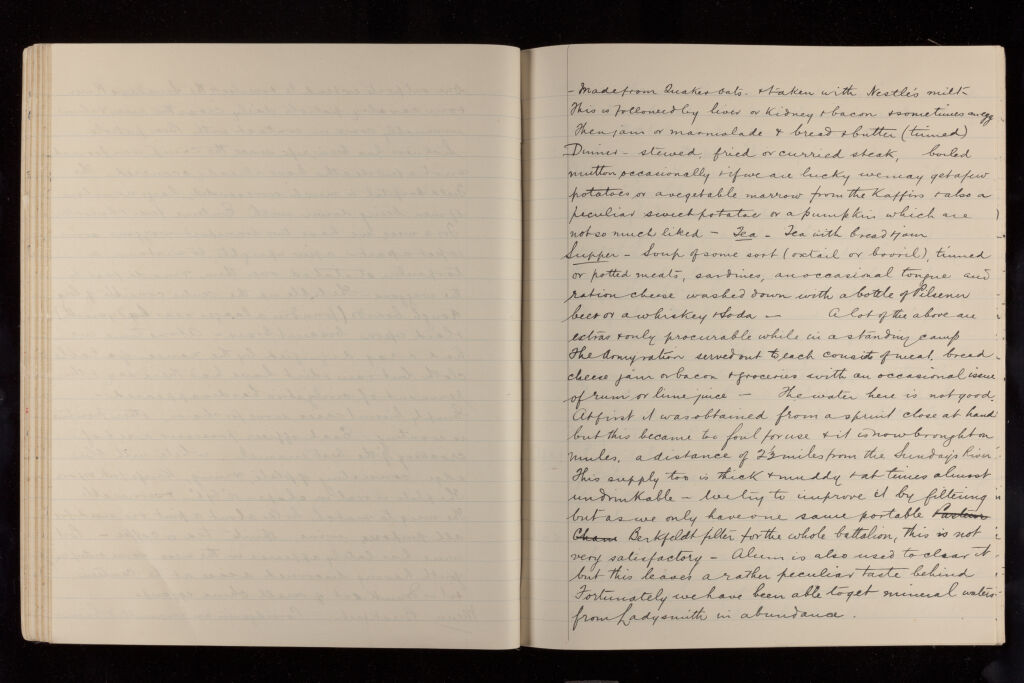 - Made from Quaker Oats. & taken with Nestle's milk
This is followed by liver or Kidney & bacon & sometimes an egg
Then jam or marmalade & bread & butter (tinned)
Dinner - stewed, fried or curried steak, boiled
mutton occasionally & if we are lucky we may get a few
potatoes or a vegetable marrow from the Kaffirs & also a
peculiar sweet potatoe or a pumpkin which are
not so much liked - Tea - Tea with bread & jam
Supper - Soup of some sort (oxtail or bovril), tinned
or potted meats, sardines, an occasional tongue and
ration cheese washed down with a bottle of Pilsener
beer or a whiskey & Soda - A lot of the above are
extras & only procurable while in a standing camp
The Army ration served out to each consists of meat, bread
cheese jam or bacon & groceries with an occasional issue
of rum or lime juice - The water here is not good.
At first it was obtained from a spruit close at hand
but this became too foul for use & it is now brought on
mules, a distance of 2½ miles from the Sunday's River
This supply too is thick & muddy & at times almost
undrinkable - We try to improve it by filtering
but as we only have one same portable Pasteur
Cham Berkfeldt filter for the whole battalion, this is not
very satisfactory - Alum is also used to clear it
but this leaves a rather peculiar taste behind
Fortunately we have been able to get mineral waters
from Ladysmith in abundance.